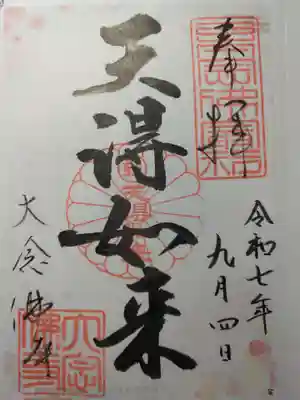 奉拝
令和七年
九月四日
天得如来
大念佛寺
大念
佛寺